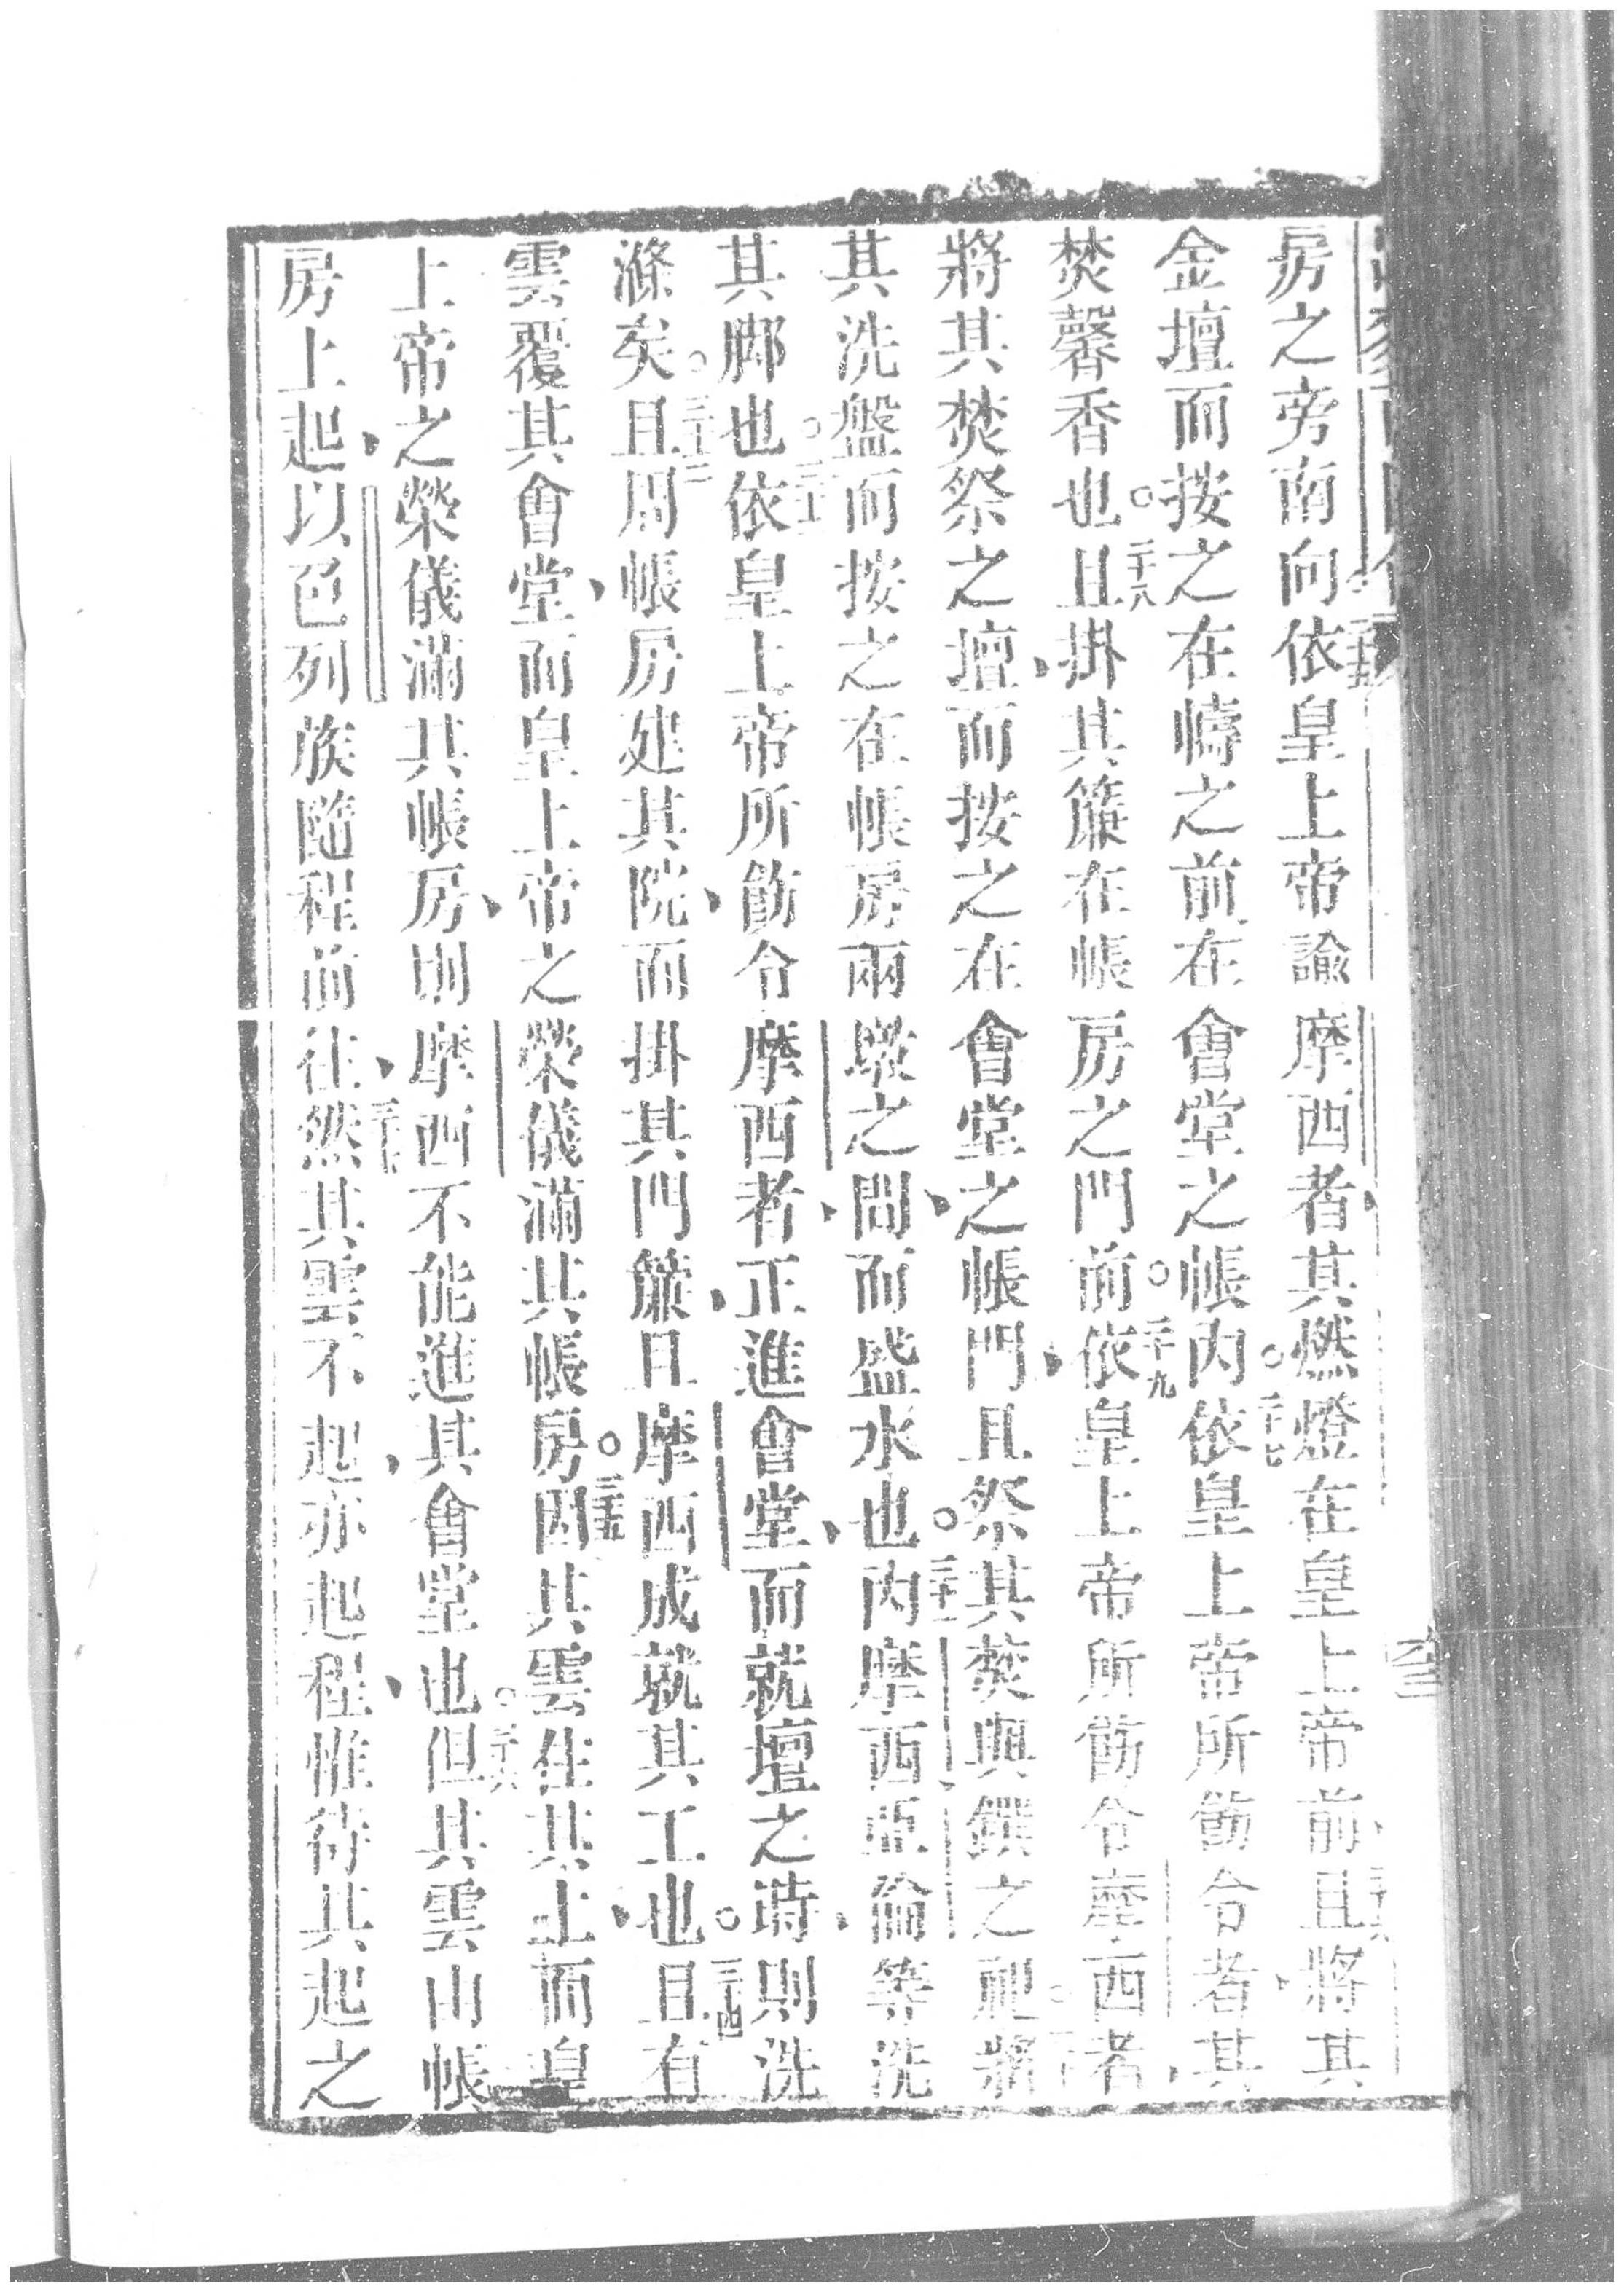 房之旁南向依皇上帝諭摩西者其燃燈在皇上帝前且將其
金壇而按之在幬之前在會堂之帳內依皇上帝所飭令者其
焚馨香也且掛其簾在帳房之門前依皇上帝所飭令摩西者
將其焚祭之壇而按之在會堂之帳門且祭其焚與饌之祀將
其洗盤而按之在帳房兩墩之間而盛水也內摩西亞倫等洗
其脚也依皇上帝所飭令摩西者正進會堂而就壇之時則洗
滌矣且周帳房建其院而掛其門簾且摩西成就其工也且有
雲覆其會堂而皇上帝之榮儀滿其帳房因其雲住其上而皇
上帝之榮儀滿其帳房則摩西不能進其會堂也但其雲由帳
房上起以色列族隨程前往然其雲不起亦起程惟待其起之